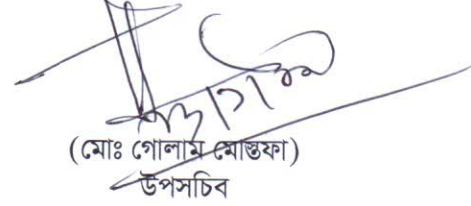 (মোঃ গোলাম মোস্তফা)
উপসচিব